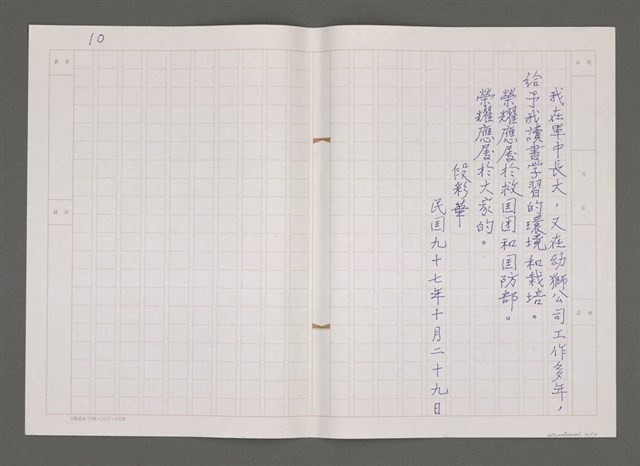 我在軍中長大，又在幼獅公司工作多年，
給予我讀書学習的環境和栽培。
榮耀應屬於救国团和国防部。
榮耀應屬於大家的。
段彩華
民国九十七年十月二十九日
10